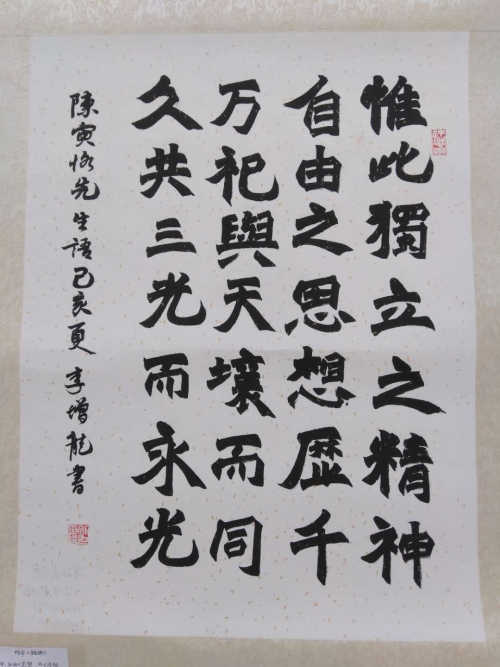 惟此獨立之精神
自由之思想歷千
万祀與天壤而同
久共三光而永光
陳寅恪先生語己亥夏李增龍書